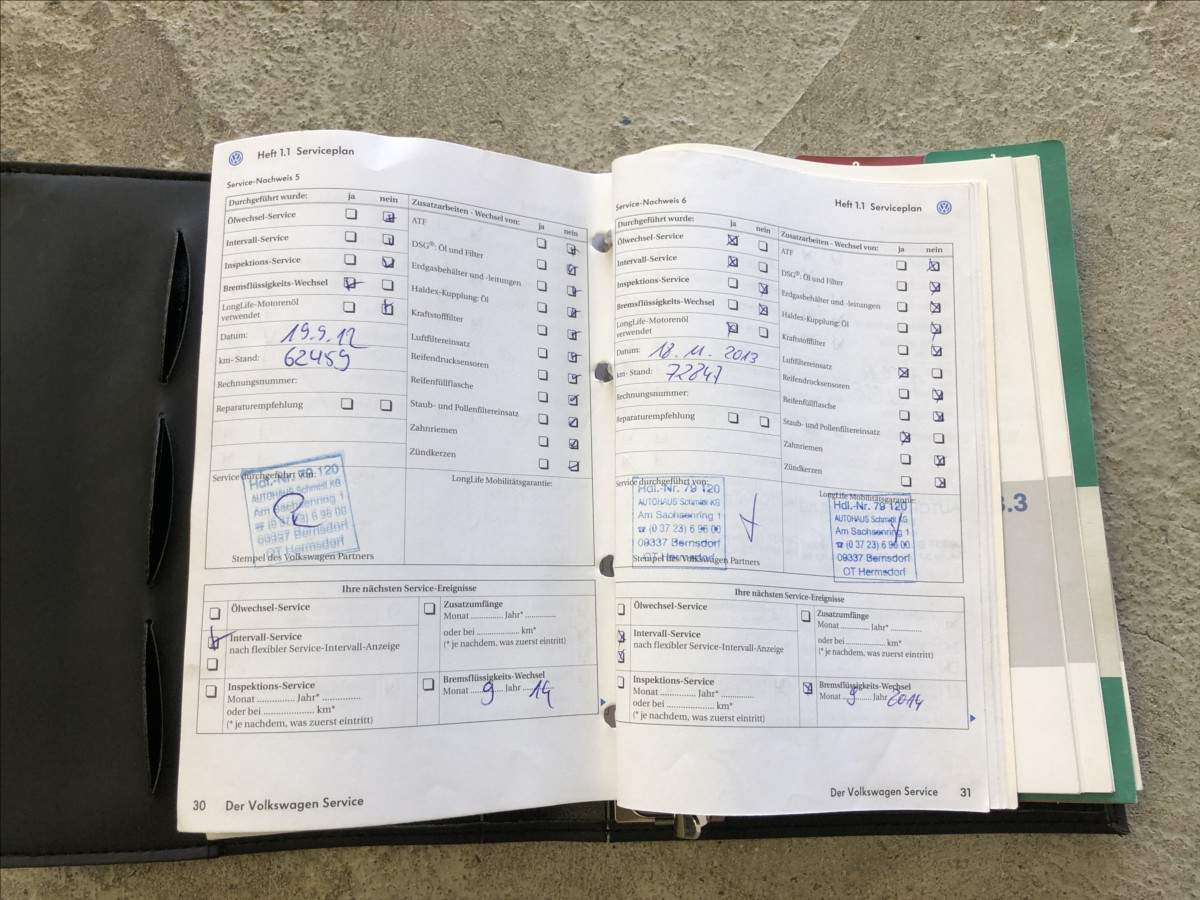 Heft 1.1 Serviceplan
Service-Nachweis 5
Durchgeführt wurde: ja nein
Ölwechsel-Service
Intervall-Service
Inspektions-Service
Bremsflüssigkeits-Wechsel
LongLife-Motorenöl
verwendet
Datum: 19.9.12
km-Stand: 62459
Rechnungsnummer:
Reparaturempfehlung
Zusatzarbeiten - Wechsel von: ja nein
ATF
DSG®: Öl und Filter
Erdgasbehälter und -leitungen
Haldex-Kupplung: Öl
Kraftstofffilter
Luftfiltereinsatz
Reifendrucksensoren
Reifenfüllflasche
Staub- und Pollenfiltereinsatz
Zahnriemen
Zündkerzen
Service durchgeführt von:
Hdl.-Nr. 79 120
AUTOHAUS Schmidt KG
Am Sachsenring 1
☎ (0 37 23) 6 96 00
09337 Bernsdorf
OT Hermsdorf
Stempel des Volkswagen Partners
LongLife Mobilitätsgarantie:
Ihre nächsten Service-Ereignisse
Ölwechsel-Service
Intervall-Service
nach flexibler Service-Intervall-Anzeige
Inspektions-Service
Monat ............ Jahr* ..............
oder bei ........................ km*
(* je nachdem, was zuerst eintritt)
Zusatzumfänge
Monat ........... Jahr* ...........
oder bei ............... km*
(* je nachdem, was zuerst eintritt)
Bremsflüssigkeits-Wechsel
Monat 9 Jahr 14
30 Der Volkswagen Service
Heft 1.1 Serviceplan
Service-Nachweis 6
Durchgeführt wurde: ja nein
Ölwechsel-Service
Intervall-Service
Inspektions-Service
Bremsflüssigkeits-Wechsel
LongLife-Motorenöl
verwendet
Datum: 18.11.2013
km-Stand: 72847
Rechnungsnummer:
Reparaturempfehlung
Zusatzarbeiten - Wechsel von: ja nein
ATF
DSG®: Öl und Filter
Erdgasbehälter und -leitungen
Haldex-Kupplung: Öl
Kraftstofffilter
Luftfiltereinsatz
Reifendrucksensoren
Reifenfüllflasche
Staub- und Pollenfiltereinsatz
Zahnriemen
Zündkerzen
Service durchgeführt von:
Hdl.-Nr. 79 120
AUTOHAUS Schmidt KG
Am Sachsenring 1
☎ (0 37 23) 6 96 00
09337 Bernsdorf
OT Hermsdorf
Stempel des Volkswagen Partners
LongLife Mobilitätsgarantie:
Hdl.-Nr. 79 120
AUTOHAUS Schmidt KG
Am Sachsenring 1
☎ (0 37 23) 6 96 00
09337 Bernsdorf
OT Hermsdorf
Ihre nächsten Service-Ereignisse
Ölwechsel-Service
Intervall-Service
nach flexibler Service-Intervall-Anzeige
Inspektions-Service
Monat ............ Jahr* ..............
oder bei ........................ km*
(* je nachdem, was zuerst eintritt)
Zusatzumfänge
Monat ........... Jahr* ...........
oder bei ............... km*
(* je nachdem, was zuerst eintritt)
Bremsflüssigkeits-Wechsel
Monat 9 Jahr 2014
Der Volkswagen Service 31
3.3